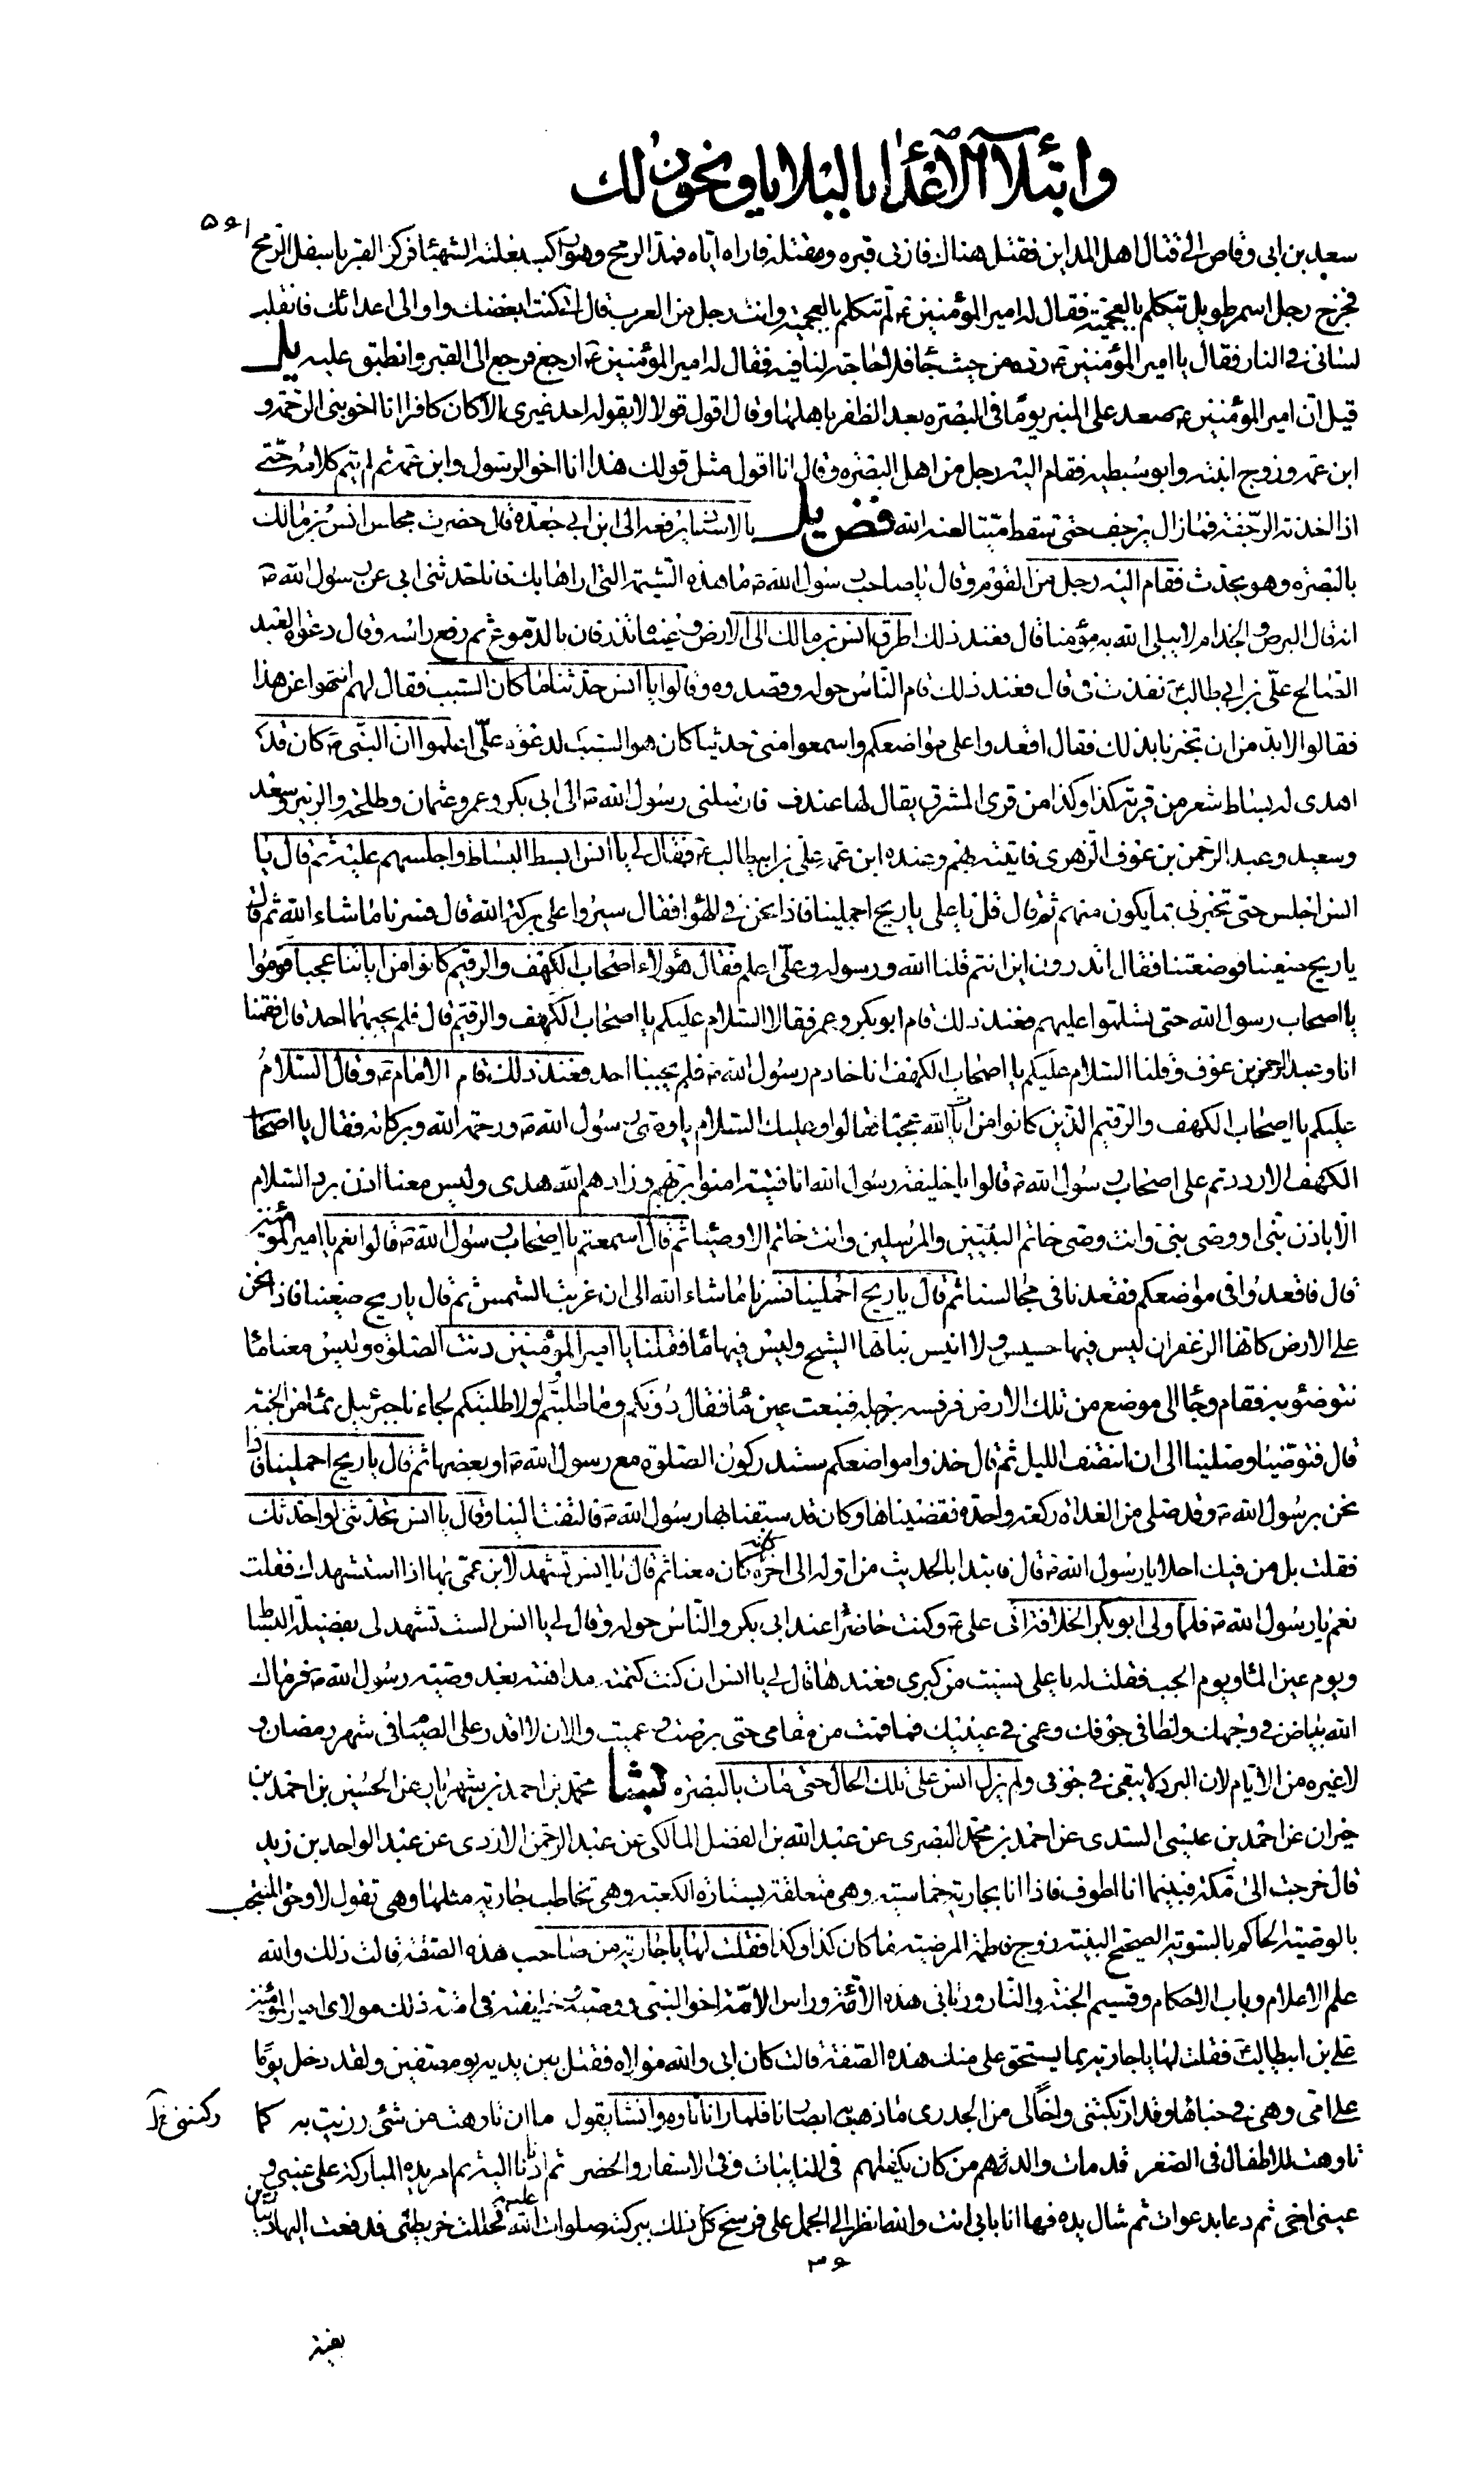 وابتلاء الاعداء بالبلايا ونحو ذلك
۵۶۱
سعد بن ابى وقاص الى قتال اهل المداين فقتل هناك فازنى قبره ومقتله فاراه اياه فمد الرمح وهو راكب بغلته الشهباء فركز القبر باسفل الرمح
فخرج رجل اسمر طويل يتكلم بالعجمية فقال له امير المؤمنين ع لم تتكلم بالعجمية وانت رجل من العرب قال انى كنت ابغضك واوالى اعدائك فانقلب
لسانى فى النار فقال يا امير المؤمنين ع رده من حيث جاء فلا حاجة لنا فيه فقال له امير المؤمنين ع ارجع فرجع الى القبر وانطبق عليه يل
قيل ان امير المؤمنين ع صعد على المنبر يوما فى البصره بعد الظفر باهلها وقال اقول قولا لا يقوله احد غيرى الا كان كافرا انا اخو نبى الرحمة و
ابن عمه وزوج ابنته وابو سبطيه فقام اليه رجل من اهل البصره وقال انا اقول مثل قولك هذا انا اخو الرسول وابن عمه ثم لم يتم كلامه حتى
اذا اخذته الرجفة فما زال يرجف حتى سقط ميتا لعنه الله فض يل بالاسناد يرفعه الى ابن ابى جعده قال حضرت مجلس انس بن مالك
بالبصره وهو يحدث فقام اليه رجل من القوم وقال يا صاحب رسول الله ص ما هذه الشيمة التى اراها بك فانا حدثنى ابى عن رسول الله ص
انه قال البرص والجذام لا يبلى الله به مؤمنا قال فعند ذلك اطرق انس بن مالك الى الارض وعيناه تذرفان بالدموع ثم رفع راسه وقال دعوة العبد
الصالح على بن ابى طالب ع نفذت فى قال فعند ذلك قام الناس حوله وقصدوه وقالوا يا انس حدثنا ما كان السبب فقال لهم انتهوا عن هذا
فقالوا لا بد من ان تخبرنا بذلك فقال اقعدوا على مواضعكم واسمعوا منى حديثا كان هو السبب لدعوة على اعلموا ان النبى ص كان قد
اهدى له بساط شعر من قرية كذا وكذا من قرى المشرق يقال لها عندف فارسلنى رسول الله ص الى ابى بكر وعمر وعثمان وطلحة والزبير وسعد
وسعيد وعبد الرحمن بن عوف الزهرى فاتيته بهم وعنده ابن عمه على بن ابيطالب ع فقال لى يا انس ابسط البساط واجلسهم عليه ثم قال يا
انس اجلس حتى تخبرنى بما يكون منهم ثم قال قل يا على يا ريح احملينا فاذا نحن فى الهوا فقال سيروا على بركة الله قال فسرنا ما شاء الله ثم قال
يا ريح ضعينا فوضعتنا فقال اتدرون اين انتم قلنا الله ورسوله وعلى اعلم فقال هؤلاء اصحاب الكهف والرقيم كانوا من اياتنا عجبا قوموا
يا اصحاب رسول الله حتى تسلموا عليهم فعند ذلك قام ابو بكر وعمر فقالا السلام عليكم يا اصحاب الكهف والرقيم قال فلم يجبهما احد قال فقمنا
انا وعبد الرحمن بن عوف وقلنا السلام عليكم يا اصحاب الكهف انا خادم رسول الله ص فلم يجبنا احد فعند ذلك قام الامام ع وقال السلام
عليكم يا اصحاب الكهف والرقيم الذين كانوا من ايات الله عجبا فقالوا وعليك السلام يا وصى رسول الله ص ورحمة الله وبركاته فقال يا اصحاب
الكهف لا رددتم على اصحاب رسول الله ص قالوا يا خليفة رسول الله انا فتية امنوا بربهم وزادهم الله هدى وليس معنا اذن برد السلام
الا باذن نبى او وصى نبى وانت وصى خاتم النبيين والمرسلين وانت خاتم الاوصياء ثم قال اسمعتم يا اصحاب رسول الله ص قالوا نعم يا امير المؤمنين
قال فاقعدوا فى مواضعكم فقعدنا فى مجالسنا ثم قال يا ريح احملينا فسرنا ما شاء الله الى ان غربت الشمس ثم قال يا ريح ضعينا فاذا نحن
على الارض كانها الزعفران ليس فيها حسيس ولا انيس نباتها الشيح وليس فيها ماء فقلنا يا امير المؤمنين دنت الصلوة وليس معنا ماء
نتوضؤ به فقام وجاء الى موضع من تلك الارض فرفسه برجله فنبعت عين ماء فقال دونكم وما طلبتم ولولا طلبتكم لجاءنا جبرئيل بماء من الجنة
قال فتوضينا وصلينا الى ان انتصف الليل ثم قال خذوا مواضعكم ستدركون الصلوة مع رسول الله ص او بعضها ثم قال يا ريح احملينا فاذا
نحن برسول الله ص وقد صلى من الغداة ركعة واحدة فقضيناها وكان قد سبقنا بها رسول الله ص فالتفت الينا وقال يا انس تحدثنى او احدثك
فقلت بل من فيك احلا يا رسول الله ص قال فابتدا بالحديث من اوله الى اخره كانه كان معنا ثم قال يا انس تشهد لابن عمى بها اذا استشهدك فقلت
نعم يا رسول الله ص فلما ولى ابو بكر الخلافة اتى على ع وكنت حاضرا عند ابى بكر والناس حوله وقال لى يا انس الست تشهد لى بفضيلة البساط
ويوم عين الماء ويوم الجب فقلت له يا على نسيت من كبرى فعندها قال لى يا انس ان كنت كتمته مداهنة بعد وصية رسول الله ص فرماك
الله ببياض فى وجهك ولظا فى جوفك وعمى فى عينيك فما قمت من مقامى حتى برصت وعميت والان لا اقدر على الصيام فى شهر رمضان و
لا غيره من الايام لان البرد لا يبقى فى جوفى ولم يزل انس على تلك الحال حتى مات بالبصره محمد بن احمد بن شهريار عن الحسين بن احمد بن
خيران عن احمد بن عيسى السدى عن احمد بن محمد البصرى عن عبد الله بن الفضل المالكى عن عبد الرحمن الازدى عن عبد الواحد بن زيد
قال خرجت الى مكة فبينما انا اطوف فاذا انا بجارية خماسية وهى متعلقة بستارة الكعبة وهى تخاطب جارية مثلها وهى تقول لا وحق المنتجب
بالوصية الحاكم بالسوية الصحيح البينة زوج فاطمة المرضية ما كان كذا وكذا فقلت لها يا جارية من صاحب هذه الصفة قالت ذلك والله
علم الاعلام وباب الاحكام وقسيم الجنة والنار وربانى هذه الامة وراس الائمة اخو النبى ووصيه وخليفته فى امته ذلك مولاى امير المؤمنين
على بن ابيطالب ع فقلت لها يا جارية بما يستحق على منك هذه الصفة قالت كان ابى والله مولاه فقتل بين يديه يوم صفين ولقد دخل يوما
على امى وهى فى خبائها وقد ارتكبتنى واخا لى من الجدرى ما ذهب به ابصارنا فلما رانا تاوه وانشا يقول ما ان تاوهت من شئ رزيت به كما
تاوهت للاطفال فى الصغر قد مات والدهم من كان يكفلهم فى النائبات وفى الاسفار والحضر ثم ادنانا اليه ثم امر يده المباركة على عينى و
عينى اخى ثم دعا بدعوات ثم شال يده فها انا بابى انت والله انظر الى الجمل على فرسخ كل ذلك ببركته صلوات الله عليه فحللت خريطتى فدفعت اليها دينارين
۳۶
بقية